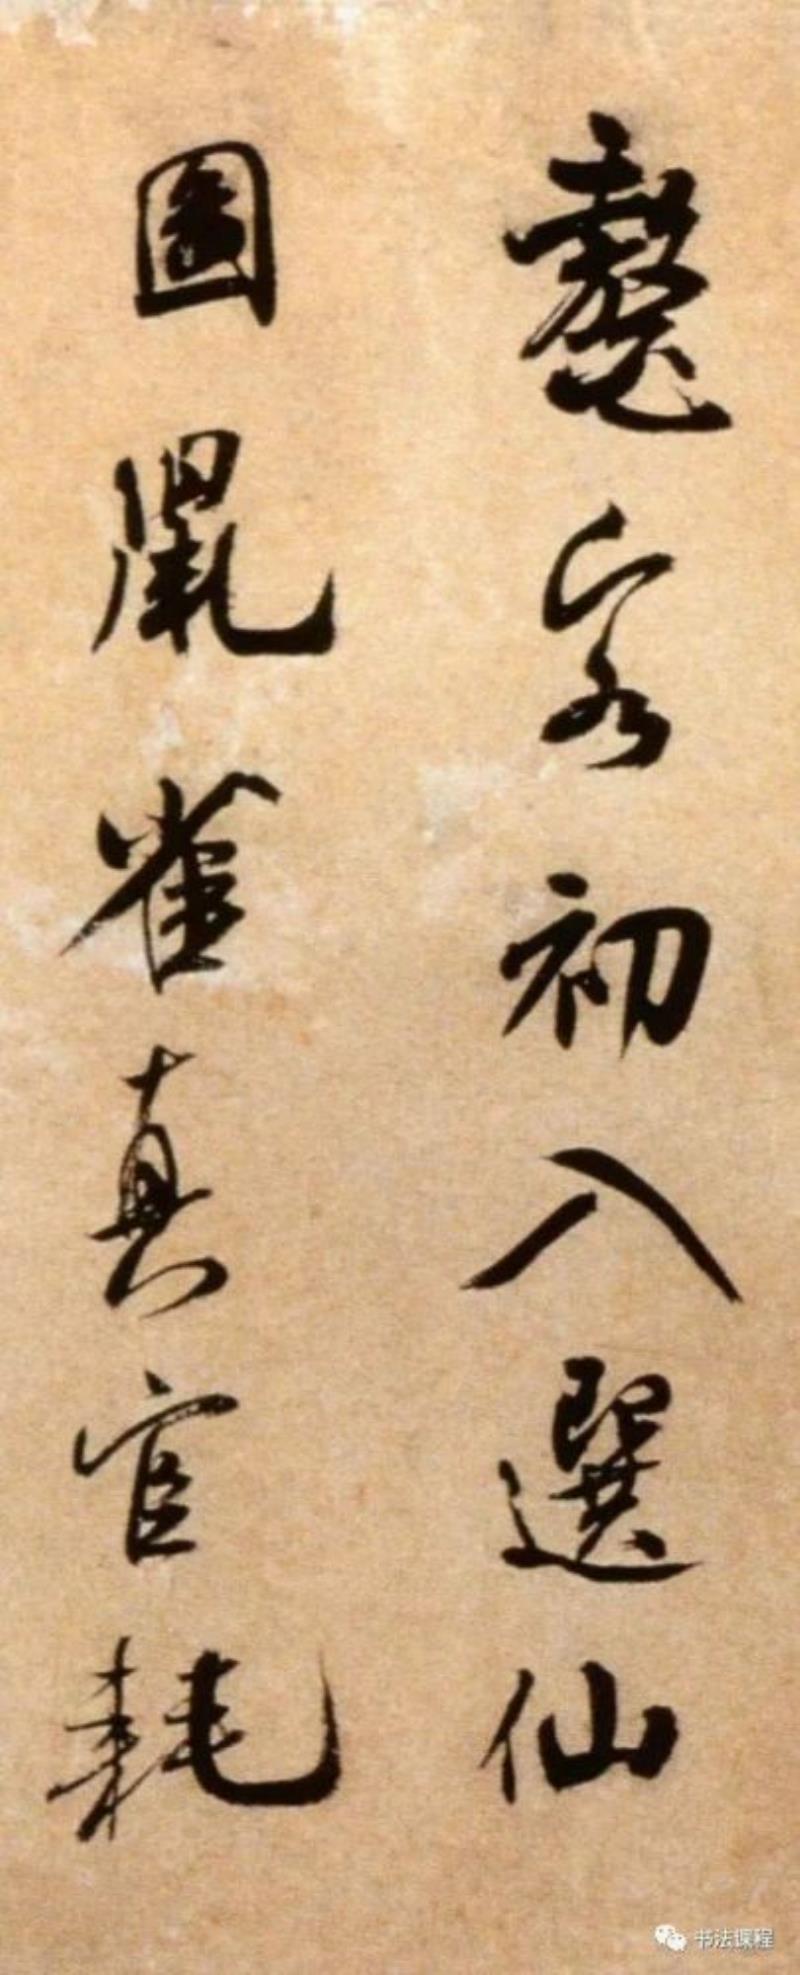 鼇客初入選仙
圖鼠雀真官耗
书法课程